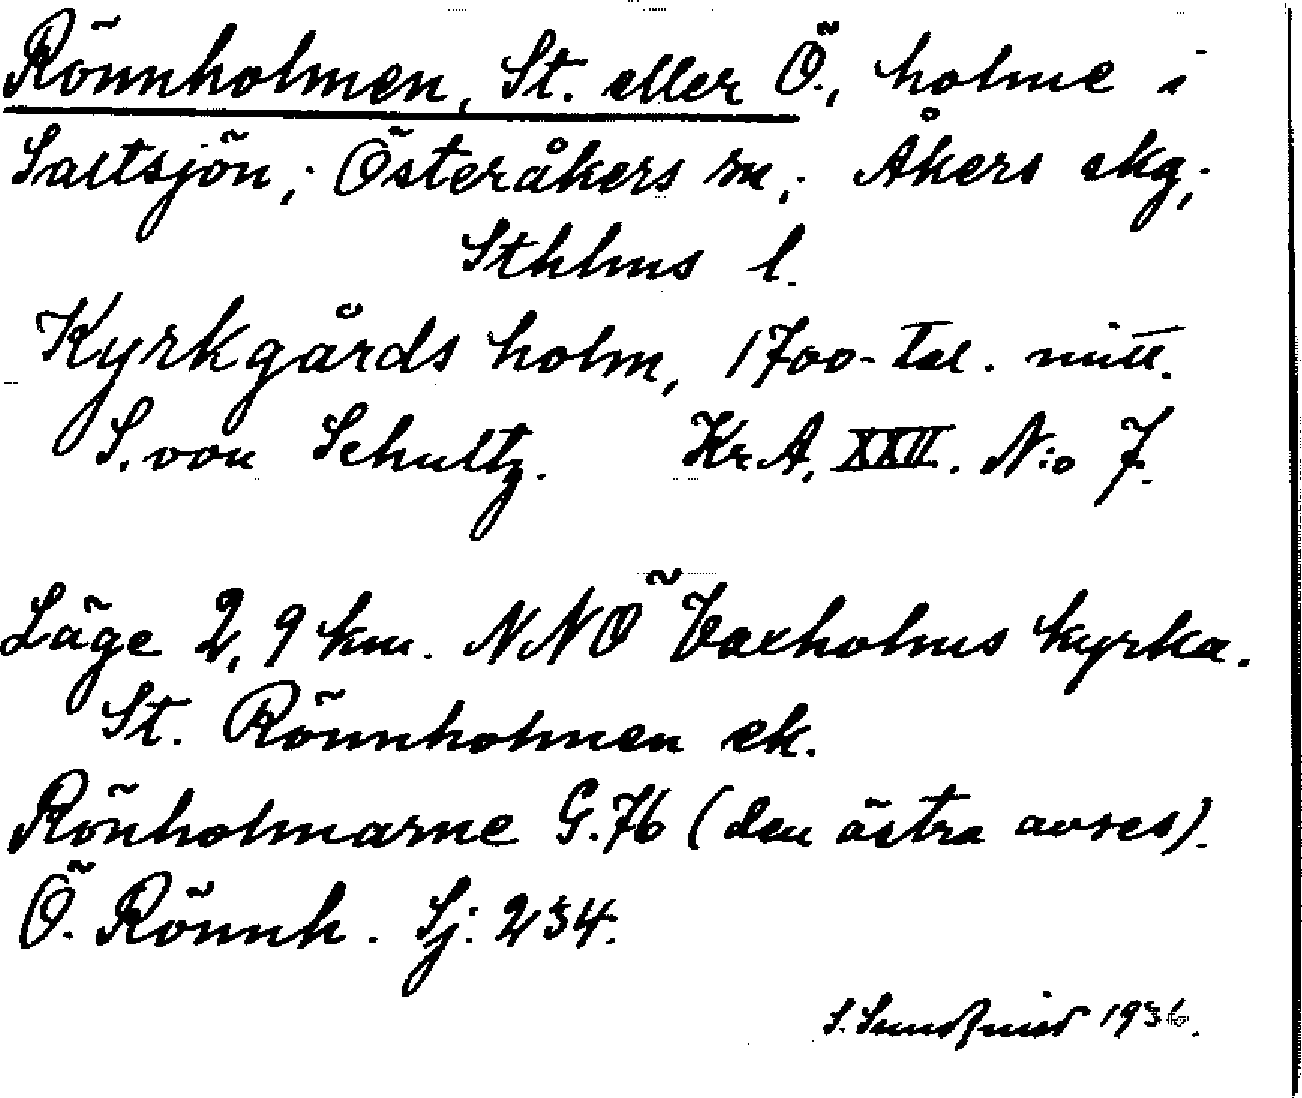 Rönnholmen, St. eller Ö., holme i
Saltsjön; Österåkers sn; Åkers skg;
Sthlms l.
Kyrkgårds holm, 1700-tal. mitt.
S. von Schultz. Kr.A. XXII. N:o 7.
Läge 2,9 km. NNÖ Vaxholms kyrka.
St. Rönnholmen ek.
Rönholmarne G.76 (den östra avses).
Ö. Rönnh. Sj: 234.
S. 1936.